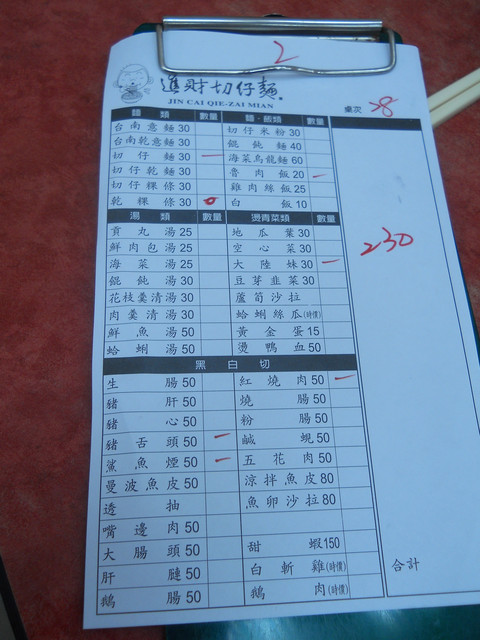 2
進財切仔麵
JIN CAI QIE-ZAI MIAN
桌次 28
麵類 數量 麵·飯類 數量
台南意麵30 切仔米粉30
台南乾意麵30 餛飩麵40
切仔麵30 一 海菜烏龍麵60
切仔乾麵30 魯肉飯20 一
切仔粿條30 雞肉絲飯25
乾粿條30 白飯10
湯類 數量 燙青菜類 數量
貢丸湯25 地瓜葉30
鮮肉包湯25 空心菜30
海菜湯25 大陸妹30 一
餛飩湯30 豆芽韭菜30
花枝羹清湯30 蘆筍沙拉
肉羹清湯30 蛤蜊絲瓜(時價)
鮮魚湯50 黃金蛋15
蛤蜊湯50 燙鴨血50
230
黑白切
生腸50 紅燒肉50 一
豬肝50 燒腸50
豬心50 粉腸50
豬舌頭50 一 鹹蜆50
鯊魚煙50 一 五花肉50
曼波魚皮50 涼拌魚皮80
透抽 魚卵沙拉80
嘴邊肉50
大腸頭50 甜蝦150
肝膶50 白斬雞(時價)
鵝腸50 鵝肉(時價)
合計